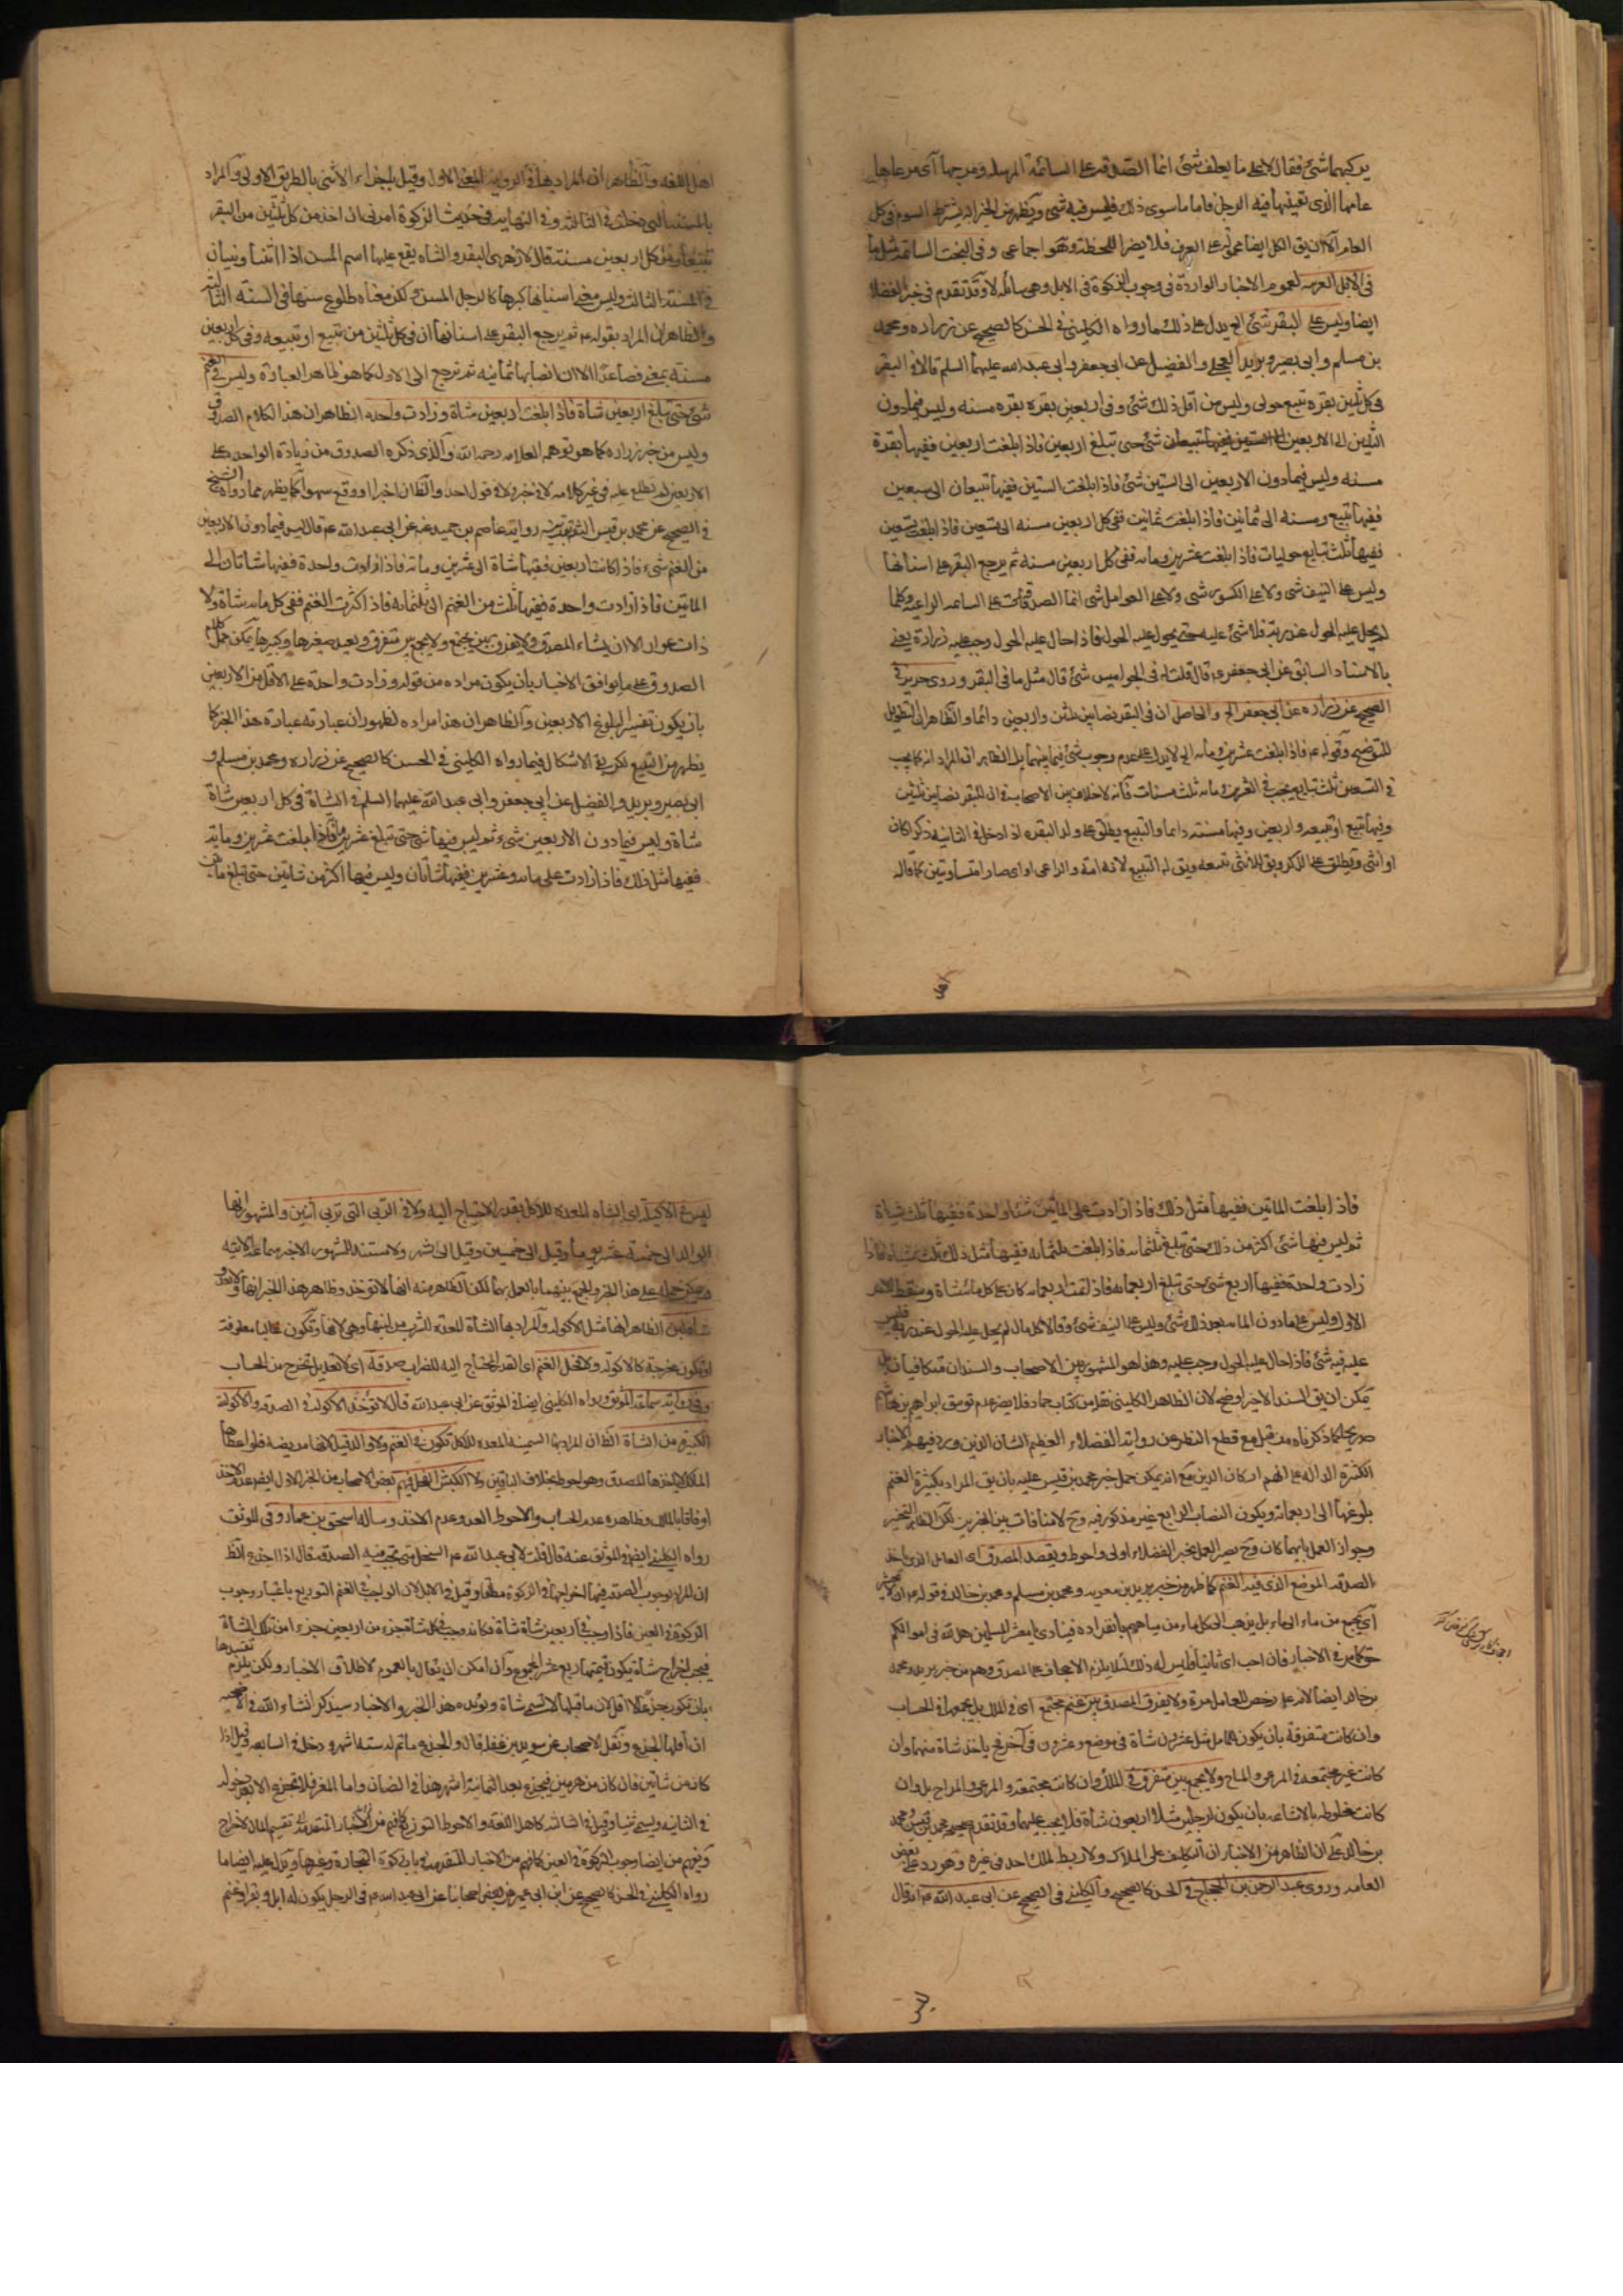 يركبهما شئ فقال لا على ما يعلف شئ انما الصدقة على السائمة المرسلة ومرجها اى مرعاها
عامها الذى تقتنيها فيه الرجل فاما ما سوى ذلك فليس فيه شئ ويظهر من الخبر انه يشترط السوم فى كل
العام الا ان يق الكل ايضا محمول على العرف فلا يضر اللحظة وهو اجماعى وفى البخت السائمة مثل ما
فى الابل العربية لعموم الاخبار الواردة فى وجوب الزكوة فى الابل وهى شاملة لا وقد تقدم فى خبر الفضلاء
ايضا وليس على البقر شئ الخ يدل على ذلك ما رواه الكلينى فى الحسن كالصحيح عن زرارة ومحمد
بن مسلم وابى بصير وبريد العجلى والفضيل عن ابى جعفر وابى عبد الله عليهما السلم قالا فى البقر
فى كل ثلثين بقرة تبيع حولى وليس من اقل ذلك شئ وفى اربعين بقرة بقرة مسنة وليس فيما دون
الثلثين الى الاربعين شئ حتى تبلغ اربعين فاذا بلغت اربعين ففيها بقرة
مسنة وليس فيما دون الاربعين الى الستين شئ فاذا بلغت الستين ففيها تبيعان الى سبعين
ففيها تبيع ومسنة الى ثمانين فاذا بلغت ثمانين ففى كل اربعين مسنة الى تسعين فاذا بلغت تسعين
ففيها ثلث تبايع حوليات فاذا بلغت عشرين ومائة ففى كل اربعين مسنة ثم يرجع البقر على اسنانها
وليس على النيف شى ولا على الكسور شى ولا على العوامل شى انما الصدقة على السائمة الراعية وكلما
لم يحل عليه الحول عند ربه فلا شئ عليه حتى يحول عليه الحول فاذا حال عليه الحول وجب عليه زرارة يعنى
بالاسناد السابق عن ابى جعفر ع قال قلت له فى الجواميس شئ قال مثل ما فى البقر وروى حريز فى
الصحيح عن زرارة عن ابى جعفر الخ والحاصل ان فى البقر نصابين ثلثين واربعين دائما والظاهر ان التطويل
للتوضيح وقوله ع فاذا بلغت عشرين ومائة الخ لا يدل على عدم وجوب شئ فيما بينهما بل الظاهر ان المراد انه كما يجب
فى التسعين ثلث تبايع يجب فى العشرين ومائة ثلث مسنات فانه لا خلاف بين الاصحاب فى ان للبقر نصابين ثلثين
وفيها تبيع او تبيعة واربعين وفيها مسنة دائما والتبيع يطلق على ولد البقرة اذا دخل فى الثانية ذكرا كان
او انثى ويطلق على الذكر ويق للانثى تبيعة ويق له التبيع لانه يتبع امه او الراعى
اهل اللغة والظاهر ان المراد هنا فى الرواية المعنى الاول وقيل باجزاء الانثى بالطريق الاولى والمراد
بالمسنة التى دخلت فى الثالثة وفى النهاية فى حديث الزكوة امرنى ان اخذ من كل ثلثين من البقر
تبيعا ومن كل اربعين مسنة قال الازهرى البقر والشاة يقع عليها اسم المسن اذا اثنيا ويثنيان
فى السنة الثالثة وليس معنى اسنانها كبرها كالرجل المسن ولكن معناه طلوع سنها فى السنة الثالثة
والظاهر ان المراد بقوله ع ثم يرجع البقر على اسنانها ان فى كل ثلثين من تبيع او تبيعة وفى كل اربعين
مسنة بمعنى فصاعدا الا ان انصابها ثمانية ثم ترجع الى الاول كما هو ظاهر العبارة وليس فى الغنم
شئ حتى تبلغ اربعين شاة فاذا بلغت اربعين شاة وزادت واحدة الظاهر ان هذا الكلام الصدوق
وليس من خبر زرارة كما هو توهمه العلامة رحمه الله والذى ذكره الصدوق من زيادة الواحدة على
الاربعين لم نطلع عليه فى غير كلامه لا فى خبر ولا فى قول احد والظان اخرا ووقع سهوا كما يظهر مما رواه الشيخ
فى الصحيح عن محمد بن قيس الثقة بقرينة رواية عاصم بن حميد عنه عن ابى عبد الله ع قال ليس فيما دون الاربعين
من الغنم شئ فاذا كانت اربعين ففيها شاة الى عشرين ومائة فاذا زادت واحدة ففيها شاتان الى
المائتين فاذا زادت واحدة ففيها ثلث من الغنم الى ثلثمائة فاذا كثرت الغنم ففى كل مائة شاة ولا
ذات عوار الا ان يشاء المصدق ولا يفرق بين مجتمع ولا يجمع بين متفرق ويعد صغيرها وكبيرها يمكن حمل كلام
الصدوق على ما يوافق الاخبار بان يكون مراده من قوله وزادت واحدة على الاقل من الاربعين
بان يكون تفسيرا لبلوغ الاربعين والظاهر ان هذا مراده لظهور ان عبارته عبارة هذا الخبر كما
يظهر من التتبع لكن بقى الاشكال فيما رواه الكلينى فى الحسن كالصحيح عن زرارة ومحمد بن مسلم و
ابى بصير وبريد والفضيل عن ابى جعفر وابى عبد الله عليهما السلم فى الشاة فى كل اربعين شاة
شاة وليس فيما دون الاربعين شئ ثم ليس فيها شئ حتى تبلغ عشرين ومائة فاذا بلغت عشرين ومائة
ففيها مثل ذلك فاذا زادت على مائة وعشرين ففيها شاتان وليس فيها اكثر من شاتين حتى تبلغ مائتين
فاذا بلغت المائتين ففيها مثل ذلك فاذا زادت على المائتين شاة واحدة ففيها ثلث شياة
ثم ليس فيها شئ اكثر من ذلك حتى تبلغ ثلثمائة فاذا بلغت ثلثمائة ففيها مثل ذلك ثلث شياة فاذا
زادت واحدة ففيها اربع شئ حتى تبلغ اربعمائة فاذا تمت اربعمائة كان على كل مائة شاة وسقط الامر
الاول وليس على ما دون المائة بعد ذلك شئ وليس على النيف شئ وقالا كل مال لم يحل عليه الحول عند ربه فليس
عليه فيه شئ فاذا حال عليه الحول وجب عليه وهذا هو المشهور بين الاصحاب والسندان متكافيان بل
يمكن ان يق السند الاخير اوضح لان الظاهر ان الكلينى نقله من كتاب حماد فلا يضر عدم توثيق ابراهيم بن هاشم
صريحا كما ذكرناه من قبل مع قطع النظر عن رواية الفضلاء العظيم الشان الذين ورد فيهم الاخبار
الكثيرة الدالة على انهم اركان الدين مع انه يمكن حمل خبر محمد بن قيس عليه بان يق المراد بكثرة الغنم
بلوغها الى اربعمائة ويكون النصاب الرابع غير مذكور فيه وح لا منافات بين الخبرين لكن الظاهر التخيير
وجواز العمل بايهما كان وح يصير العمل بخبر الفضلاء اولى واحوط ويقصد المصدق اى العامل الذى ياخذ
الصدقة الموضع الذى فيه الغنم كما ظهر من خبر بريد بن معوية ومحمد بن مسلم ومحمد بن خالد
اى يجمع من ماء الى ماء بل يذهب الى كل ماء من مياههم بانفراده فينادى يا معشر المسلمين هل لله فى اموالكم
حق كما مر فى الاخبار فان احب اى ثانيا فليس له ذلك لئلا يلزم الاجحاف على المصدق
بن خالد ايضا لانه على رخص للعامل مرة ولا يفرق المصدق بين غنم مجتمع اى فى الملك بل يجمعها فى الحساب
وان كانت متفرقة بان يكون لمالك مثل عشرون شاة فى موضع وعشرون فى آخر فح ياخذ شاة منهما وان
كانت غير مجتمعة فى المرعى والمراح ولا يجمع بين متفرق فى الملك وان كانت مجتمعة فى المرعى والمراح بل وان
كانت مخلوطة بالاشاعة بان يكون لرجلين مثلا اربعون شاة فلا يجب عليهما وقد تقدم صحيحة محمد بن قيس ومحمد
بن خالد على ان الظاهر من الاخبار ان التكليف على الملاك ولا ربط لملك احد فى غيره وهو رد على بعض
العامة وروى عبد الرحمن بن الحجاج فى الحسن كالصحيح والكلينى فى الصحيح عن ابى عبد الله ع انه قال
ليس فى الاكيلة اى الشاة المعدة للاكل بقدر الاحتياج اليه ولا فى الربى التى تربى اثنين والمشهور انها
الوالد الى خمسة عشر يوما وقيل الى خمسين وقيل الى شهر ولا مستند للمشهور
ويمكن حمله على هذا الخبر والجمع بينهما بالعمل بهما لكن الظاهر منه انها لا توخذ وظاهر هذا الخبر انها
شاة لبن الظاهر انها مثل الاكولة والمراد بها الشاة المعدة لشرب من لبنها
او تكون مخرجة كالاكولة ولا فحل الغنم اى القدر المحتاج اليه للضراب صدقة اى لا تعد بل تخرج من الحساب
وفى رواية سماعة الموثق رواه الكلينى ايضا فى الموثق عن ابى عبد الله قال لا توخذ الاكولة فى الصدقة والاكولة
الكبيرة من الشاة الظان المراد بها السمينة المعدة للاكل تكون فى الغنم ولا والدة قيل لانها مريضة فلو اعطاها
المالك ياخذها المصدق وهو احوط بخلاف الباقيين ولا الكبش الفحل فهم بعض الاصحاب من الخبر الاول ايضا عدم الاخذ
ارفاقا بالمالك وظاهره عدم الحساب والاحوط العد وعدم الاخذ وساله اسحق بن عمار وفى الموثق
رواه الكلينى ايضا فى الموثق عنه قال قلت لابى عبد الله ع السخل متى تجب فيه الصدقة قال اذا اجذع الظ
الزكوة فى العين فاذا وجب فى اربعين شاة شاة فكانه وجب فى كل شاة جزء من اربعين جزء من تلك الشاة
ان اقلها الجذع ونقل الاصحاب عن سويد بن غفلة قال والجذع ما تم له ستة اشهر ودخل فى السابعة قيل اذا
كان من شاتين فان كان من هرمين فيجذع بعد ثمانية اشهر هذا فى الضان واما المعز فلا تجزى الا بعد دخوله
فى الثانية ويسمى ثنيا وقيل فى الثالثة كاهل اللغة والاحوط
رواه الكلينى فى الحسن كالصحيح عن ابن ابى عمير عن بعض اصحابنا عن ابى عبد الله ع فى الرجل يكون له ابل وبقر وغنم